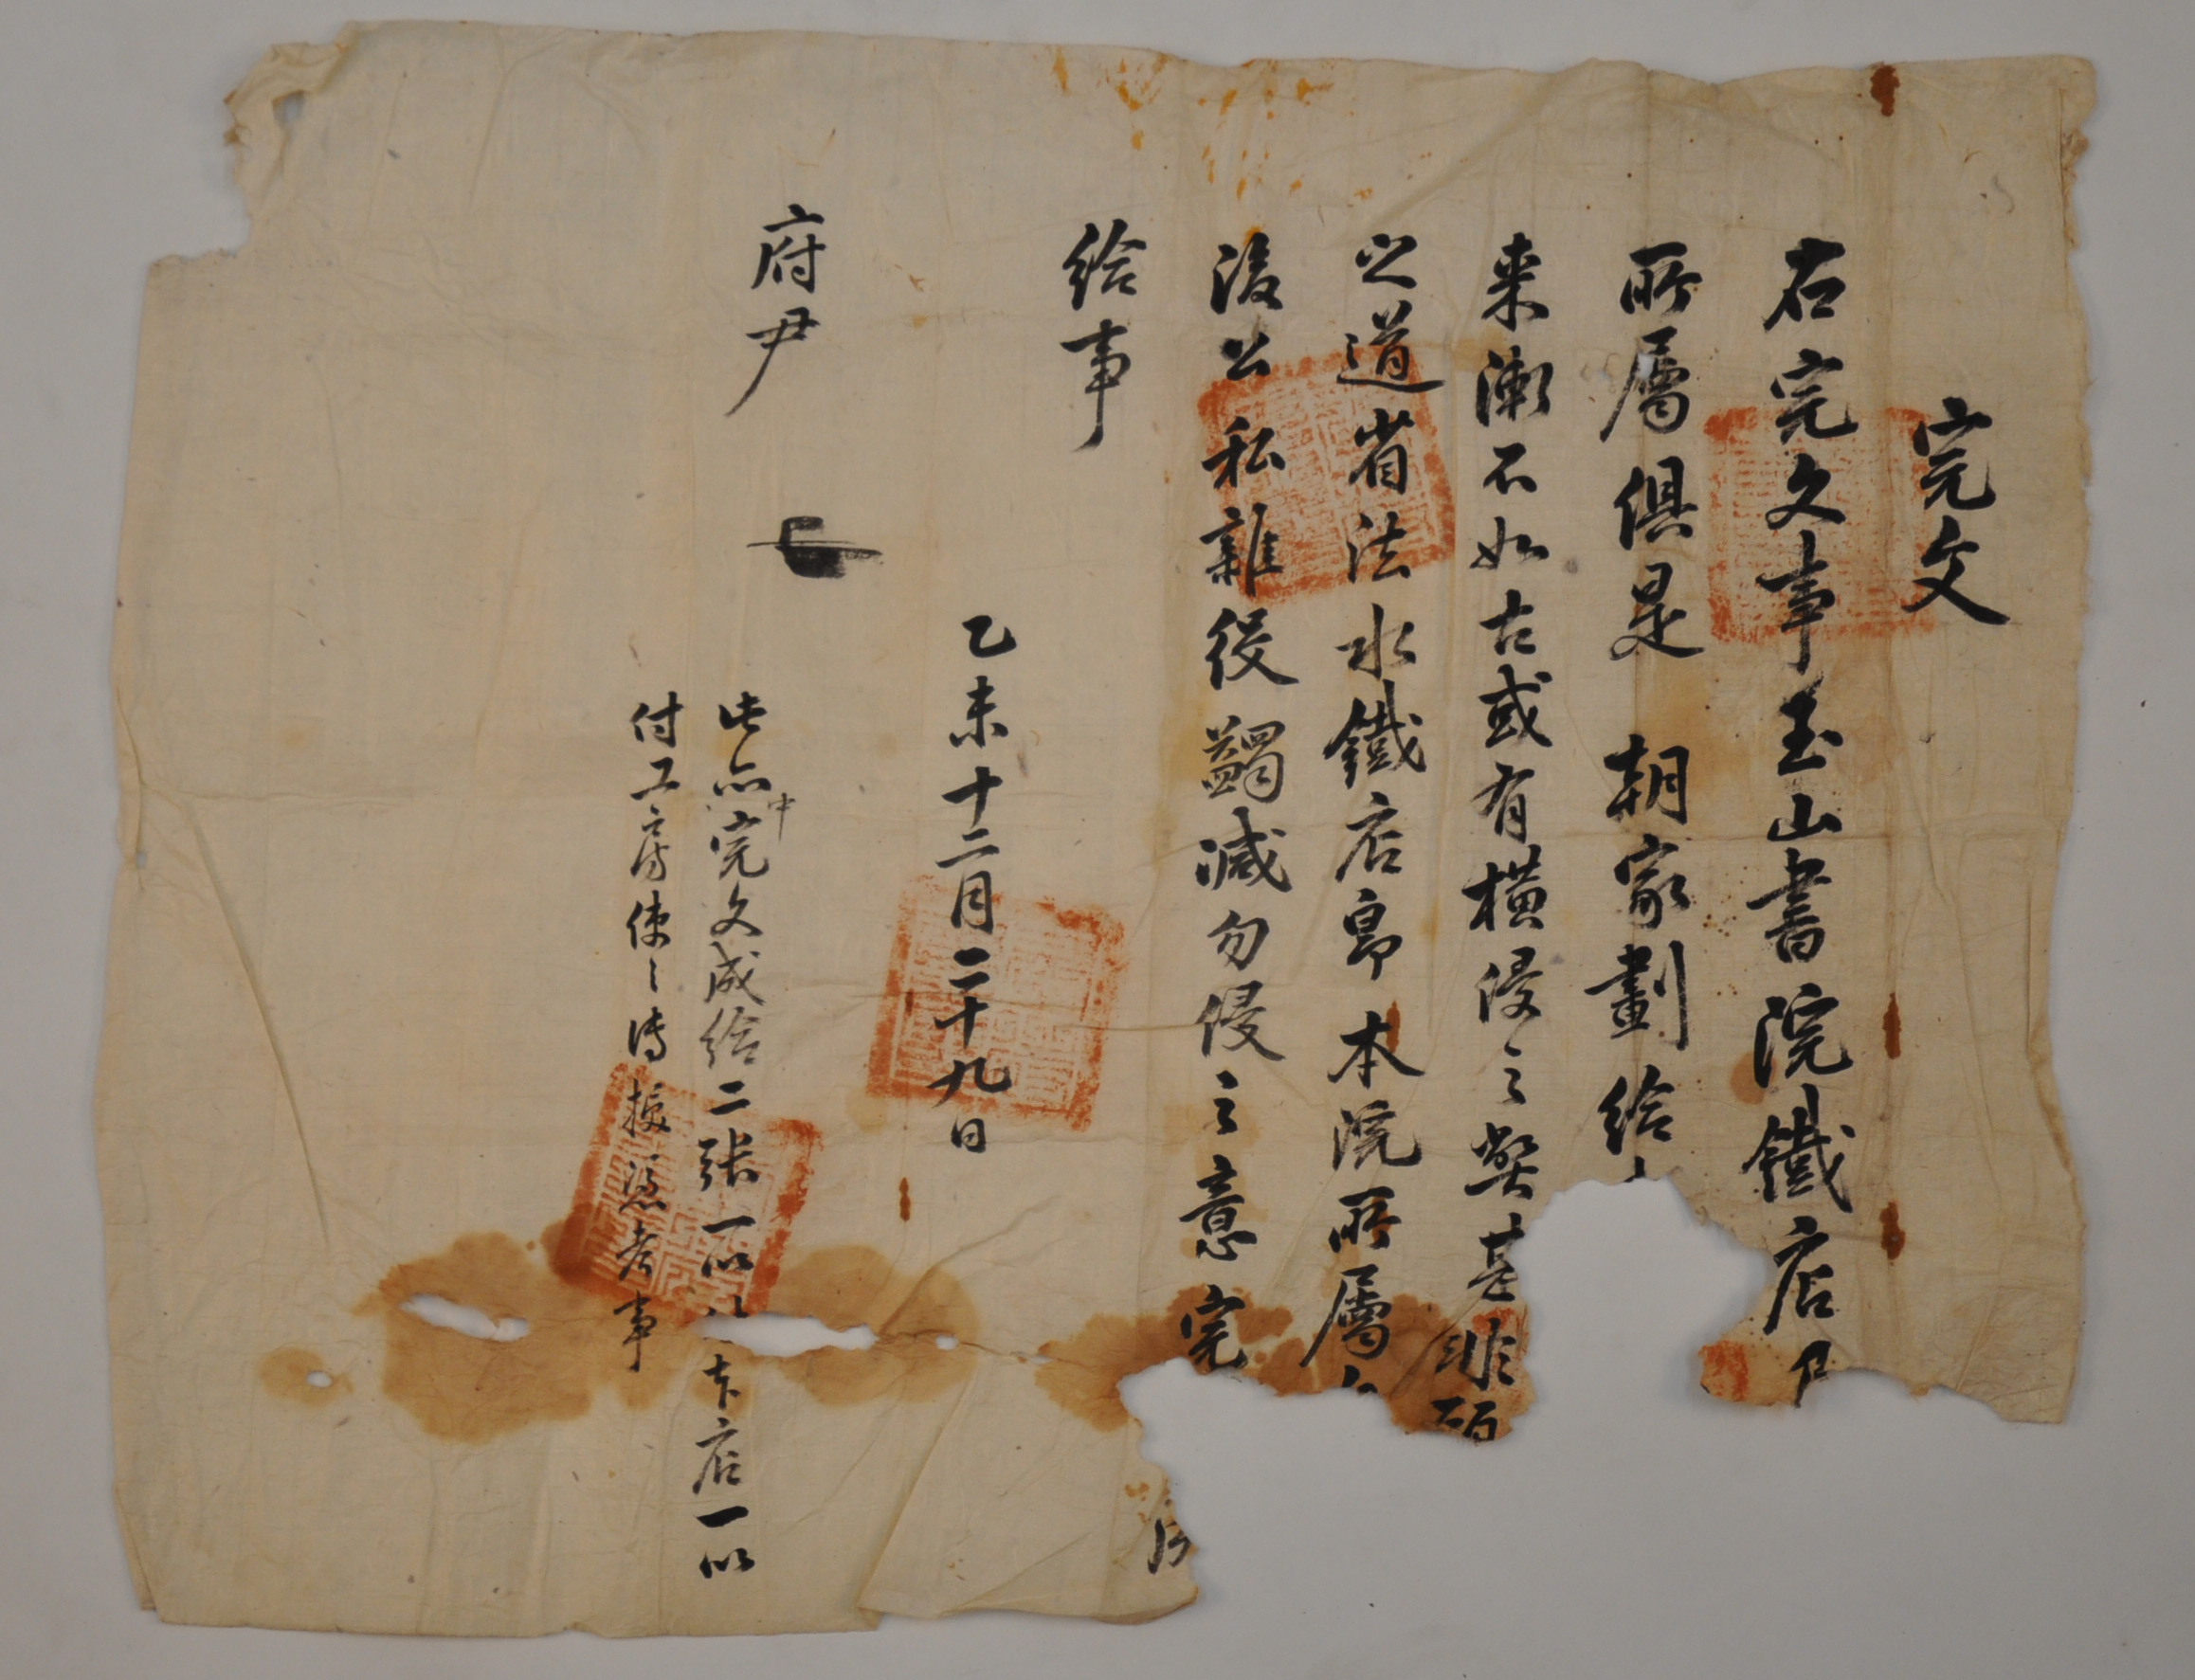 完文
右完文事玉山書院鐵店
所屬俱是 朝家劃給
來漸不如古或有橫侵之弊甚非
之道省法水鐵店卽本院所屬
後公私雜役蠲減勿侵之意完
給事
乙未十二月二十九日
府尹
此亦中完文成給二張一以 店一以
付工房使之傳授憑考事